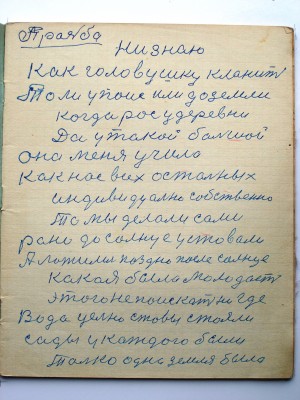 Прадба
Ни знаю
Как головушку кланит
То ли упоис или до земли
когда рос у деревни
Да у такой балшой
она меня учила
Как нас всех осталных
индивидуално собственно
То мы делали сами
рано до солнце уставали
А ложились поздно после солнце
Какая была молодаст
этого не поискат ни где
Вода целно ставы стояли
сады у каждого были
Толко одна земля была